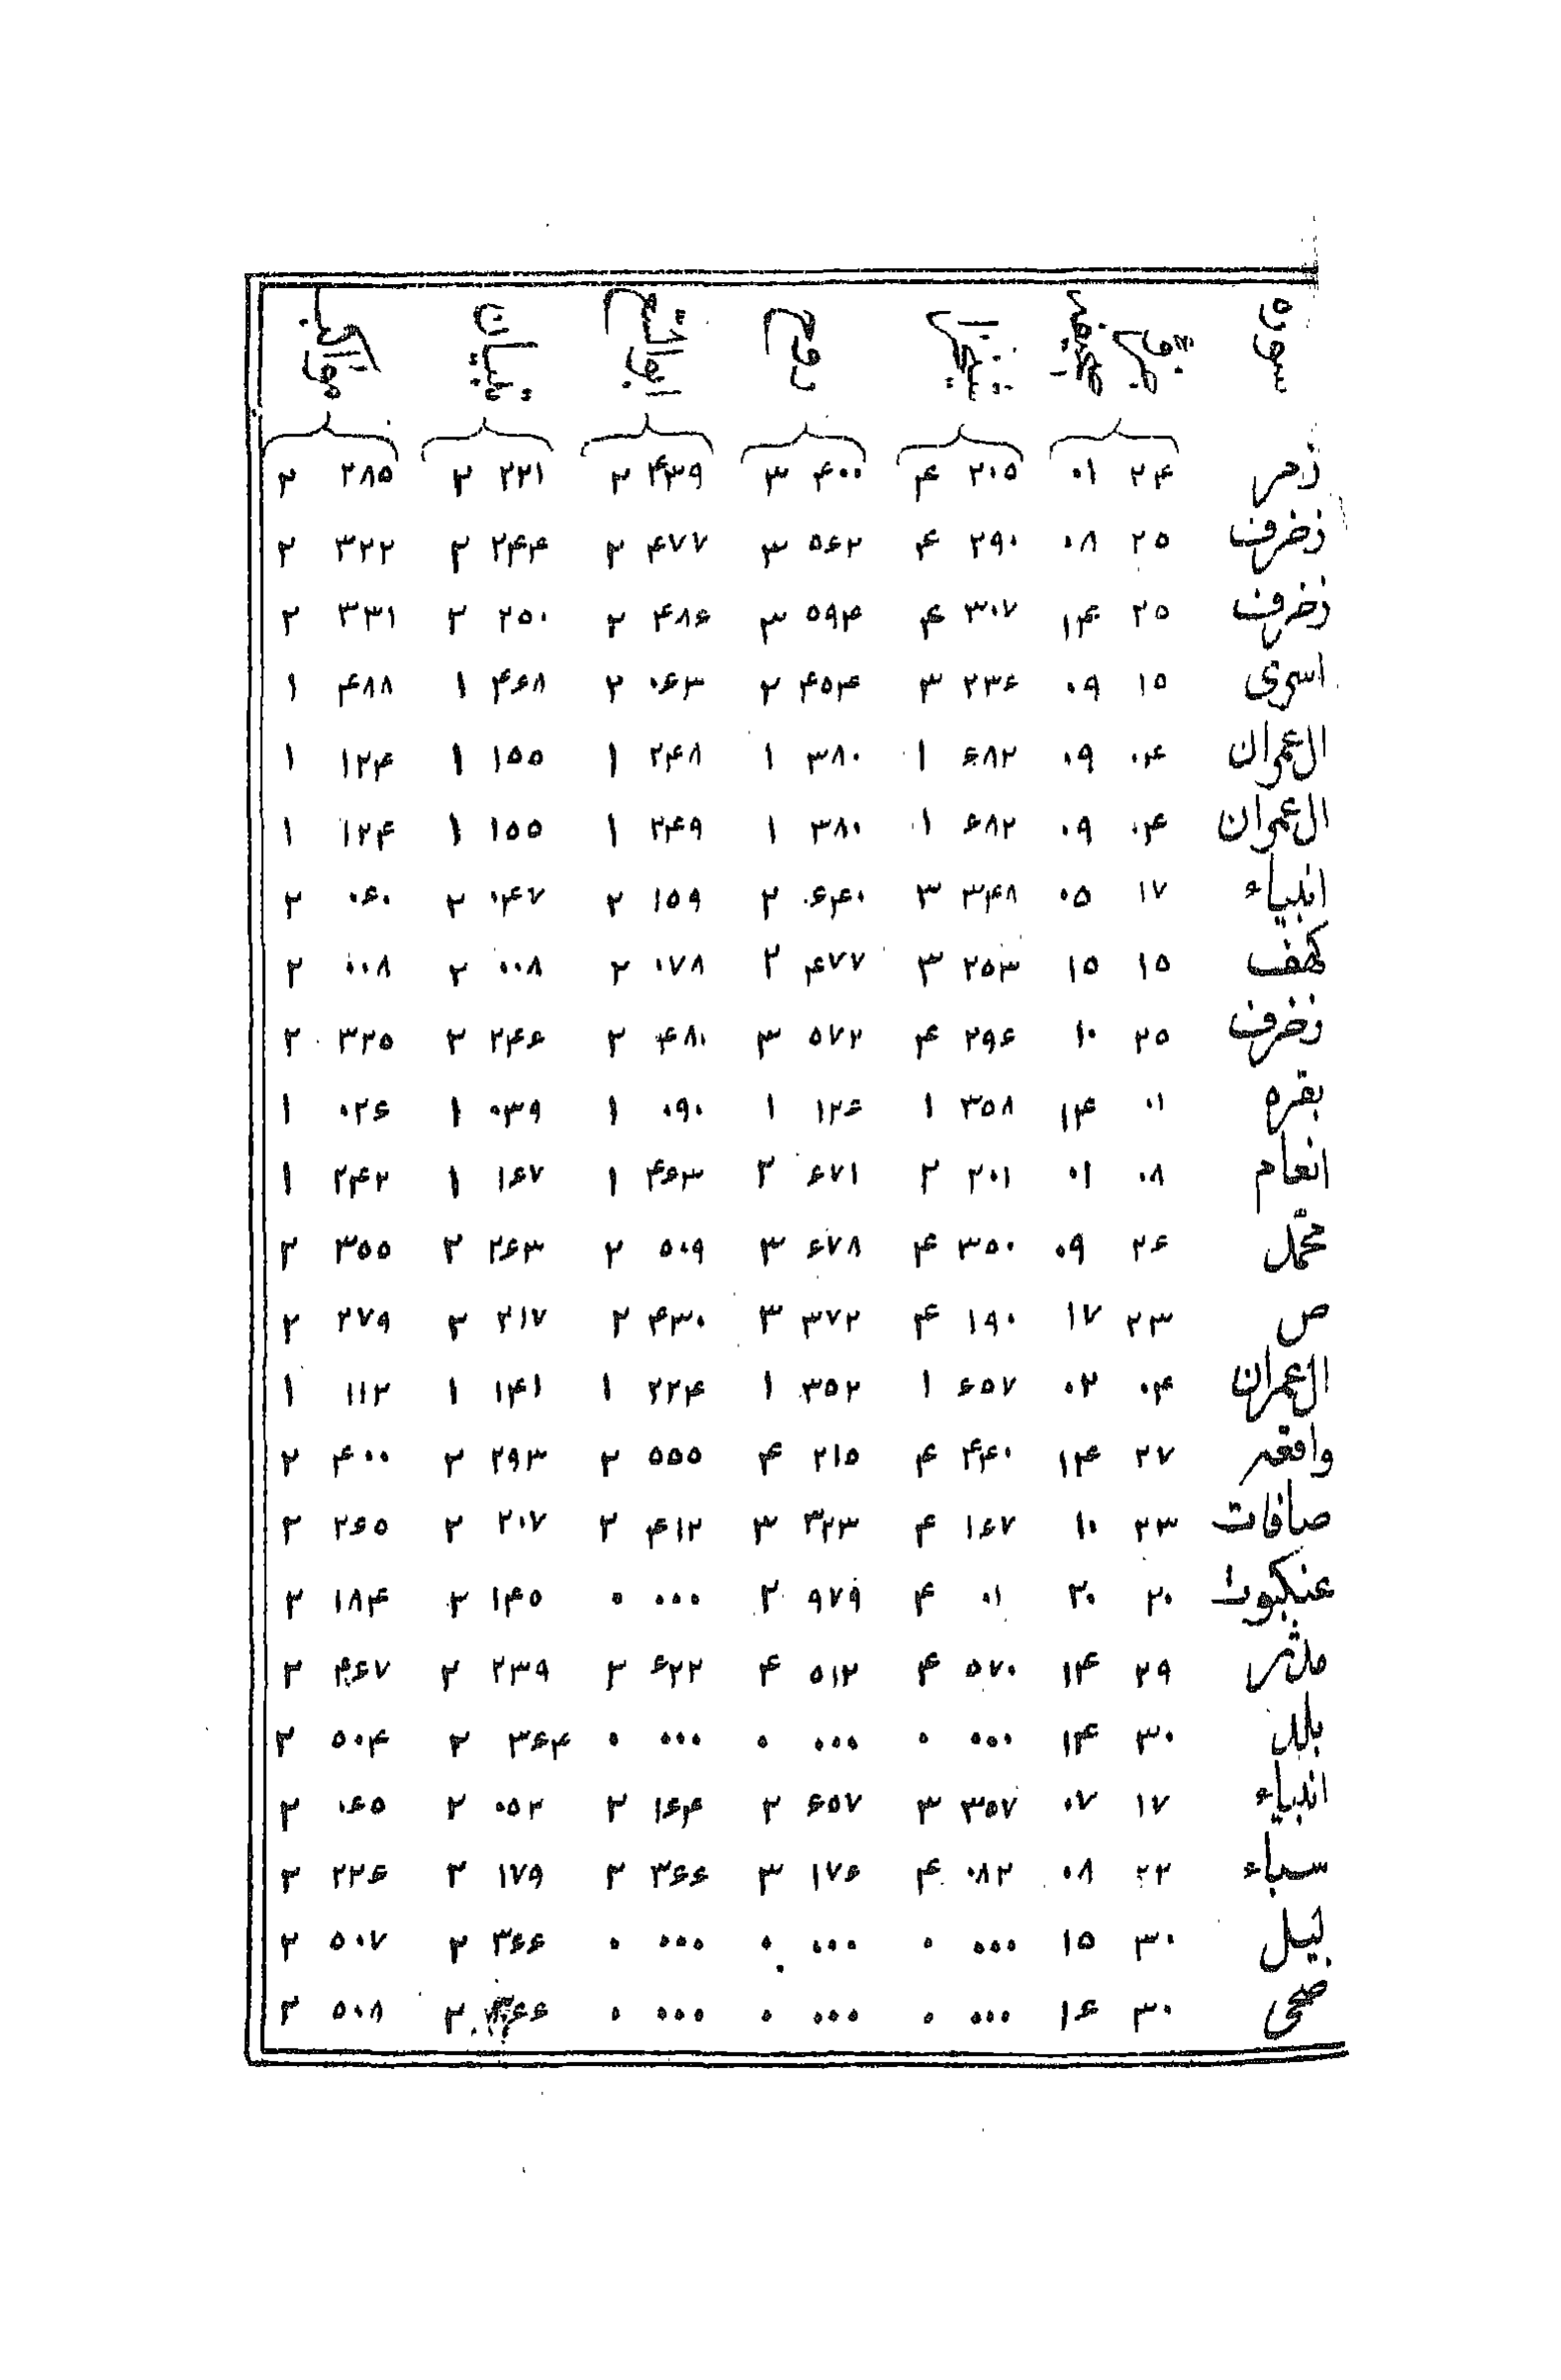 سوره روح ابوالفتوح تبیان
زمر ۲۴ ۰۱ ۲۰۵ ۴ ۴۰۰ ۳ ۴۳۹ ۲ ۲۲۱ ۲ ۲۸۵ ۲
زخرف ۲۵ ۰۸ ۲۹۰ ۴ ۵۶۲ ۳ ۴۷۷ ۲ ۲۴۴ ۲ ۳۲۲ ۲
زخرف ۲۵ ۱۴ ۳۰۷ ۴ ۵۹۴ ۳ ۴۸۶ ۲ ۲۵۰ ۲ ۳۳۱ ۲
اسری ۱۵ ۰۹ ۲۳۶ ۳ ۴۵۴ ۲ ۰۶۳ ۲ ۴۶۸ ۱ ۴۸۸ ۱
ال عمران ۰۴ ۰۹ ۶۸۲ ۱ ۳۸۰ ۱ ۲۴۸ ۱ ۱۵۵ ۱ ۱۲۴ ۱
ال عمران ۰۴ ۰۹ ۶۸۲ ۱ ۳۸۰ ۱ ۲۴۹ ۱ ۱۵۵ ۱ ۱۲۴ ۱
انبیاء ۱۷ ۰۵ ۳۴۸ ۳ ۶۴۰ ۲ ۱۵۹ ۲ ۰۴۷ ۲ ۰۶۰ ۲
کهف ۱۵ ۱۵ ۲۵۳ ۳ ۴۷۷ ۲ ۰۷۸ ۲ ۰۰۸ ۲ ۰۰۸ ۲
زخرف ۲۵ ۱۰ ۲۹۶ ۴ ۵۷۲ ۳ ۴۸۰ ۲ ۲۴۶ ۲ ۳۲۵ ۲
بقره ۰۱ ۱۴ ۳۵۸ ۱ ۱۲۶ ۱ ۰۹۰ ۱ ۰۳۹ ۱ ۰۲۶ ۱
انعام ۰۸ ۰۱ ۲۰۱ ۲ ۶۷۱ ۲ ۴۶۳ ۱ ۱۶۷ ۱ ۲۴۲ ۱
محمّد ۲۶ ۰۹ ۳۵۰ ۴ ۶۷۸ ۳ ۵۰۹ ۲ ۲۶۳ ۲ ۳۵۵ ۲
ص ۲۳ ۱۷ ۱۹۰ ۴ ۳۷۲ ۳ ۴۳۰ ۲ ۲۱۷ ۲ ۲۷۹ ۲
ال عمران ۰۴ ۰۲ ۶۵۷ ۱ ۳۵۲ ۱ ۲۲۴ ۱ ۱۴۱ ۱ ۱۱۲ ۱
واقعه ۲۷ ۱۴ ۴۴۰ ۴ ۲۱۵ ۴ ۵۵۵ ۲ ۲۹۳ ۲ ۴۰۰ ۲
صافات ۲۳ ۱۰ ۱۶۷ ۴ ۳۲۳ ۳ ۴۱۲ ۲ ۲۰۷ ۲ ۲۶۵ ۲
عنکبوت ۲۰ ۲۰ ۰۱ ۴ ۹۷۹ ۲ ۰۰۰ ۰ ۱۴۵ ۲ ۱۸۴ ۲
مدثر ۲۹ ۱۴ ۵۷۰ ۴ ۵۱۲ ۴ ۶۲۲ ۲ ۲۳۹ ۲ ۴۶۷ ۲
بلد ۳۰ ۱۴ ۰۰۰ ۰ ۰۰۰ ۰ ۰۰۰ ۰ ۳۶۴ ۲ ۵۰۴ ۲
انبیاء ۱۷ ۰۷ ۳۵۷ ۳ ۶۵۷ ۲ ۱۶۴ ۲ ۰۵۲ ۲ ۰۶۵ ۲
سباء ۲۲ ۰۸ ۰۸۲ ۴ ۱۷۶ ۳ ۳۶۶ ۲ ۱۷۹ ۲ ۲۲۶ ۲
لیل ۳۰ ۱۵ ۰۰۰ ۰ ۰۰۰ ۰ ۰۰۰ ۰ ۳۶۶ ۲ ۵۰۷ ۲
ضحی ۳۰ ۱۶ ۰۰۰ ۰ ۰۰۰ ۰ ۰۰۰ ۰ ۳۶۶ ۲ ۵۰۸ ۲